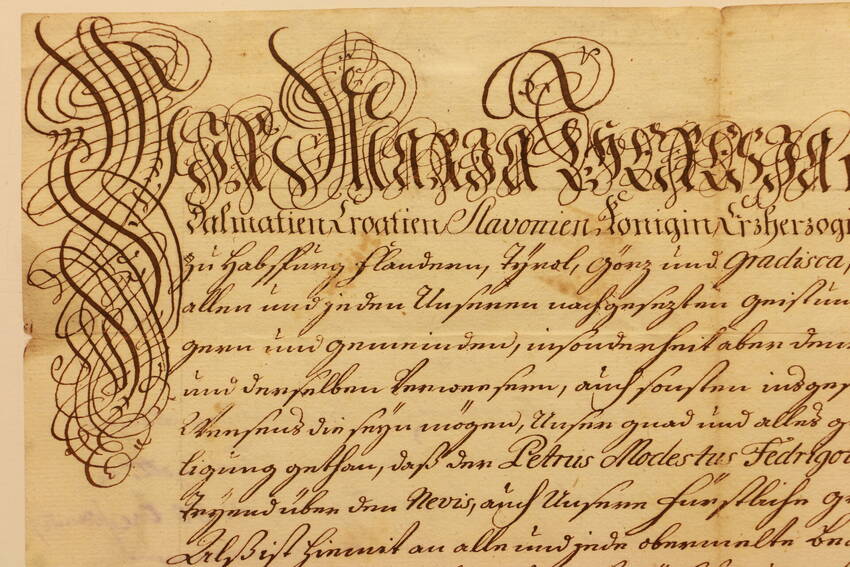 WIR MARIA THERESIA
Dalmatien Croatien Slavonien Königin Erzherzogi
zu Habspurg Flandern, Tÿrol, Görz und Gradisca,
allen und jeden Unseren nachgesezten geist un
gern und gemeinden, insonderheit aber dem
und derselben Verweesern, auch sonsten insges
Weesens die seyn mögen, Unser gnad und alles g
ligung gethan, daß der Petrus Modestus Fedrigo
über den Nevis, auch Unsere Fürstliche G
Alß ist hiemit an alle und jede obermelte